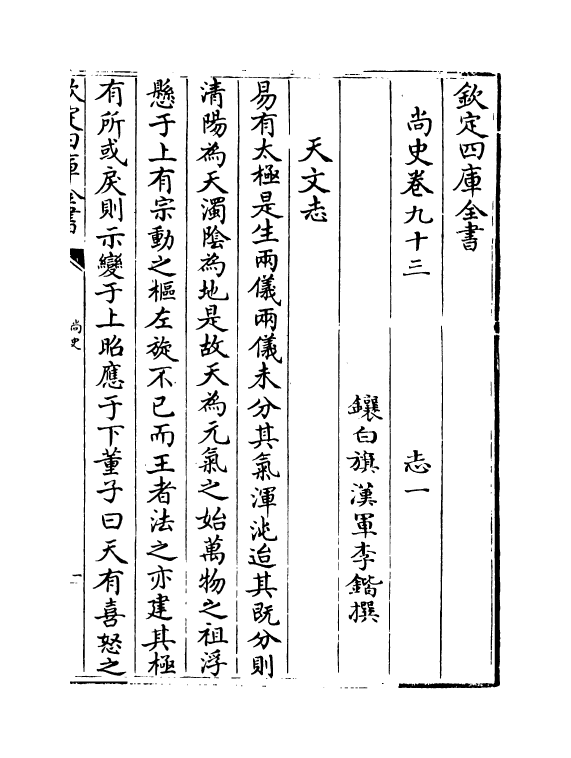 欽定四庫全書
尚史卷九十三　　　志一
鑲白旗漢軍李鍇撰
天文志
易有太極是生兩儀兩儀未分其氣渾沌迨其既分則
清陽為天濁陰為地是故天為元氣之始萬物之祖浮
懸于上有宗動之樞左旋不已而王者法之亦建其極
有所或戾則示變于上昭應于下董子曰天有喜怒之
欽定四庫全書
尚史
一